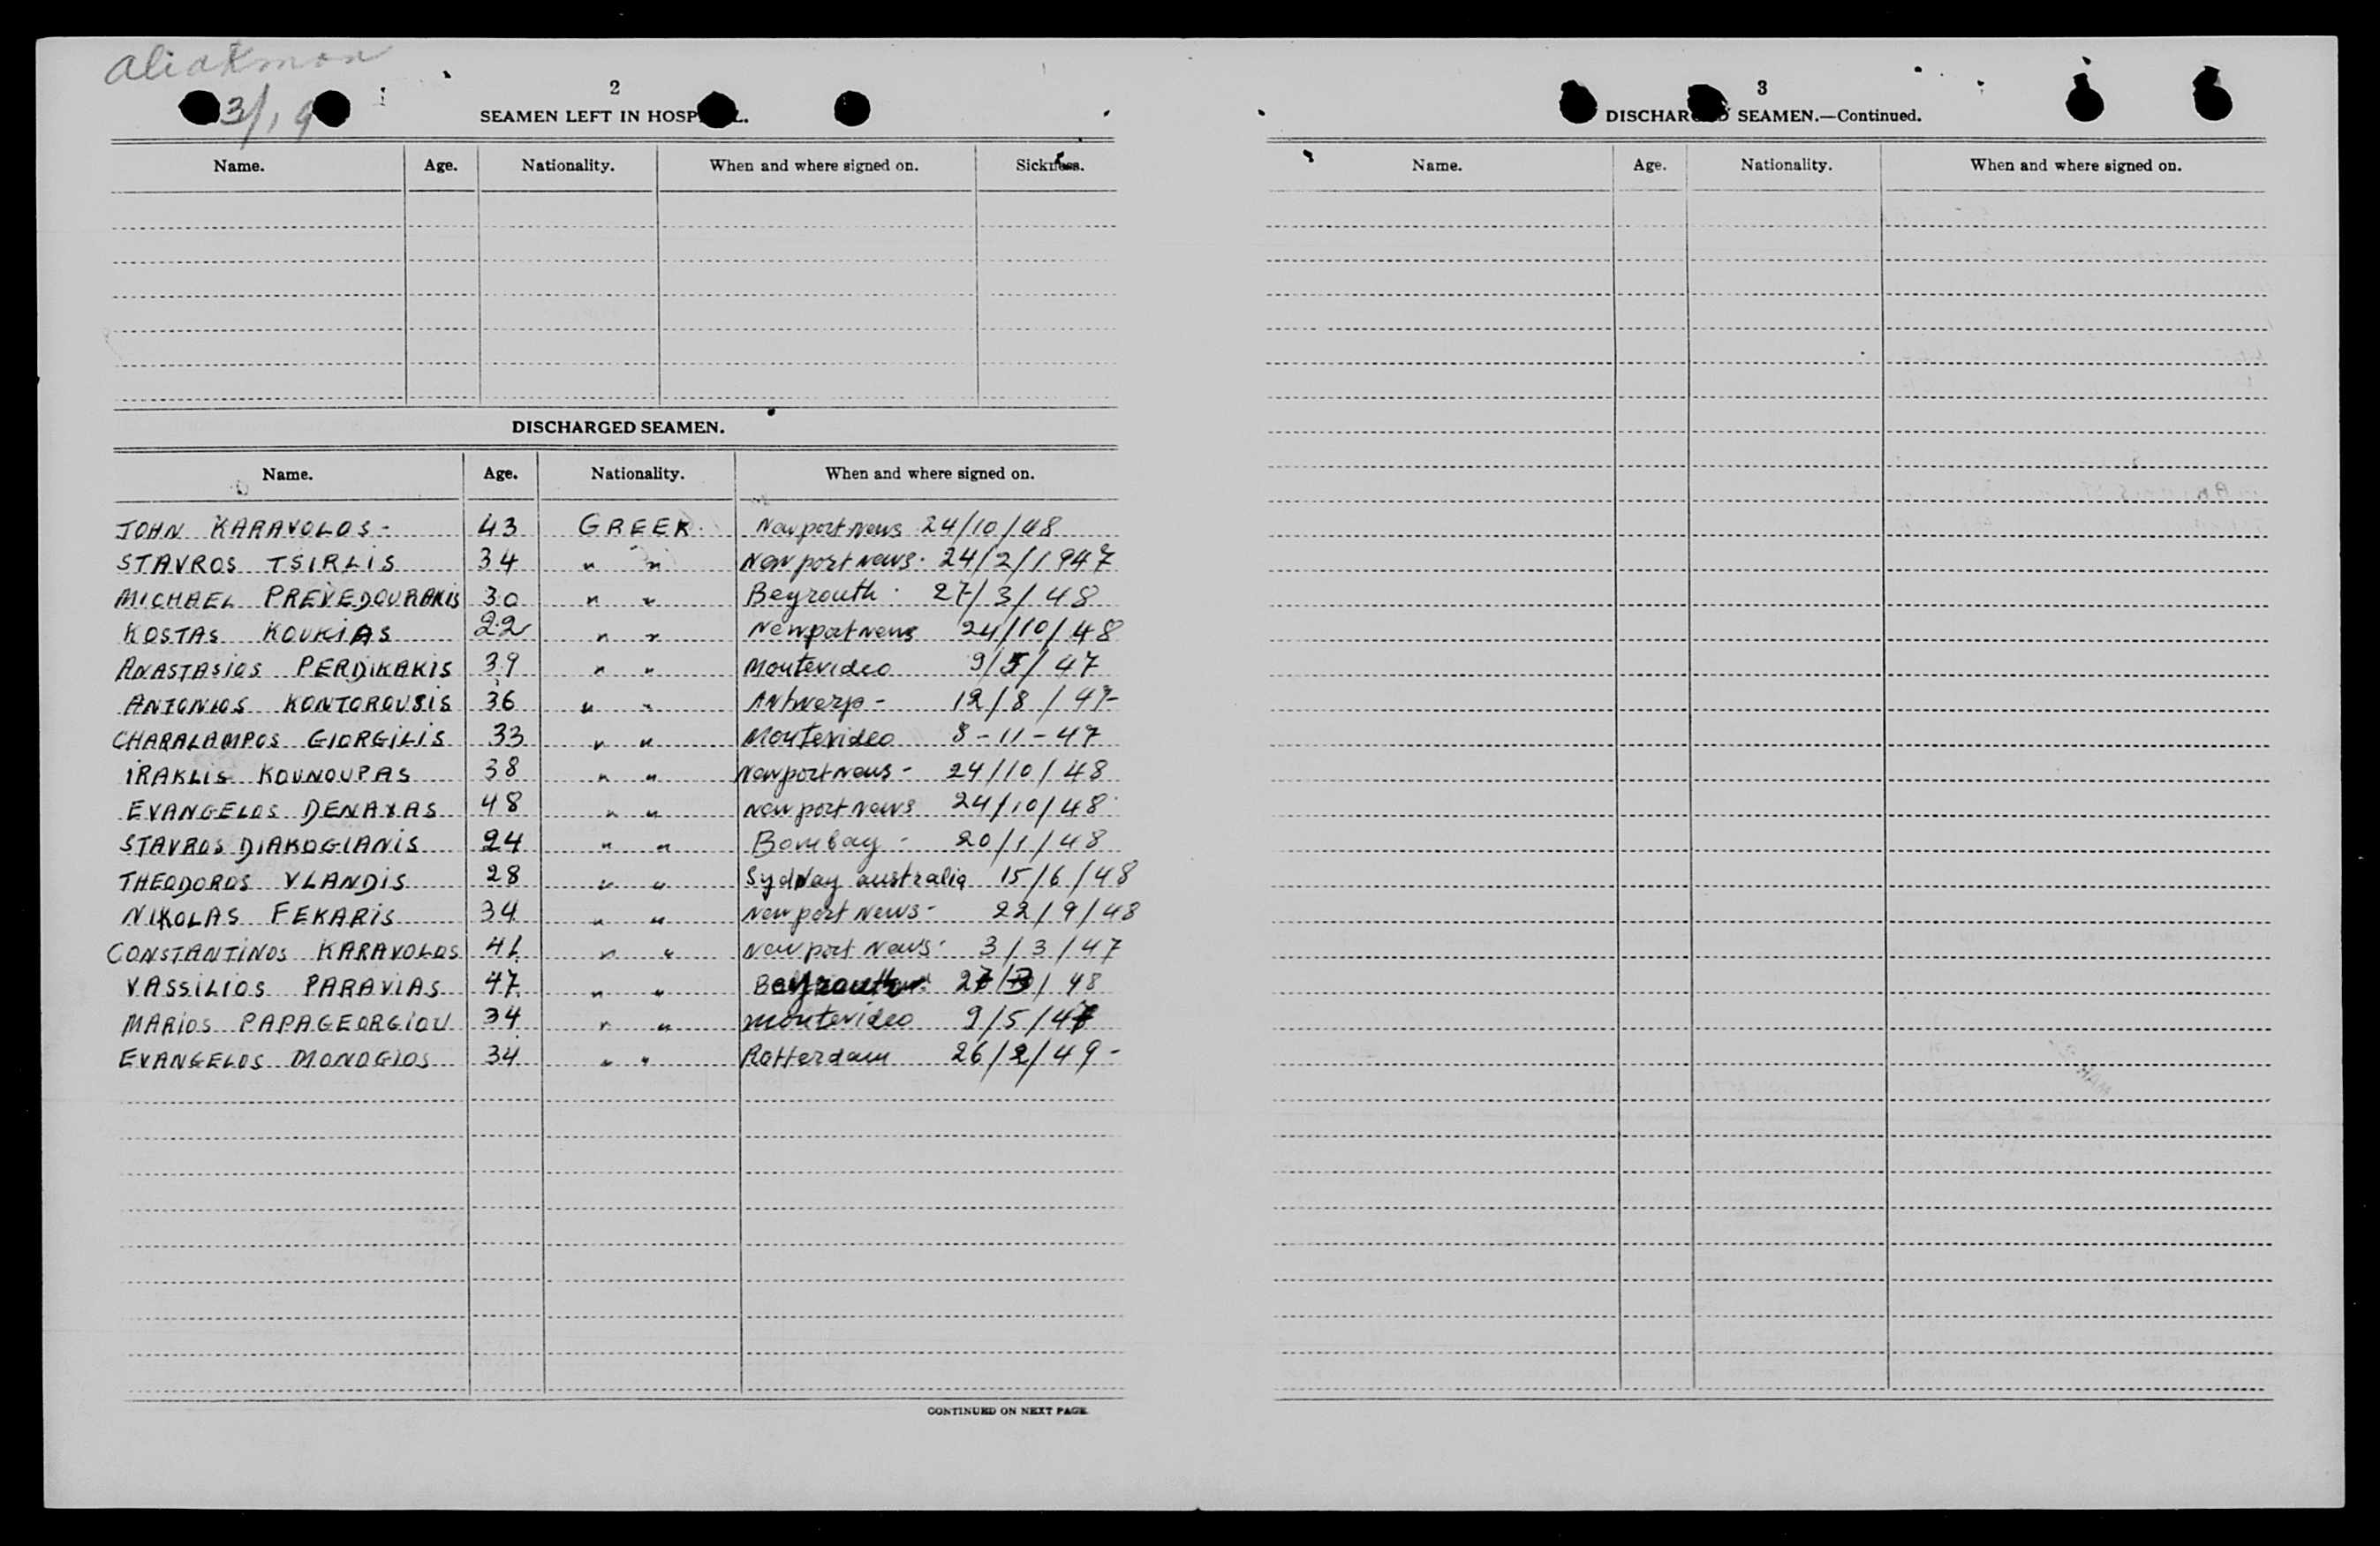 aliakmon
3/19
2
SEAMEN LEFT IN HOSPITAL.
Name. Age. Nationality. When and where signed on. Sickness.
DISCHARGED SEAMEN.
Name. Age. Nationality. When and where signed on.
JOHN KARAVOLOS - 43 GREEK. Newport News 24/10/48
STAVROS TSIRLIS 34 " " Newport News. 24/2/1947
MICHAEL PREVEDOURAKIS 30 " " Beyrouth. 27/3/48
KOSTAS KOUKIAS 22 " " Newport News 24/10/48
ANASTASIOS PERDIKAKIS 39 " " Montevideo 9/5/47
ANTONIOS KONTOROUSIS 36 " " Antwerp - 12/8/47-
CHARALAMPOS GIORGILIS 33 " " Montevideo 8-11-47
IRAKLIS KOUNOUPAS 38 " " Newport News - 24/10/48
EVANGELOS DENAXAS 48 " " Newport News 24/10/48
STAVROS DIAKOGIANIS 24 " " Bombay - 20/1/48
THEODOROS VLANDIS 28 " " SydNay australia 15/6/48
NIKOLAS FEKARIS 34 " " Newport News - 22/9/48
CONSTANTINOS KARAVOLOS 41 " " Newport News. 3/3/47
VASSILIOS PARAVIAS 47 " " Beyrouth 27/3/48
MARIOS PAPAGEORGIOU 34 " " Montevideo 9/5/47
EVANGELOS MONOGIOS 34 " " Rotterdam 26/2/49-
CONTINUED ON NEXT PAGE
3
DISCHARGED SEAMEN.—Continued.
Name. Age. Nationality. When and where signed on.